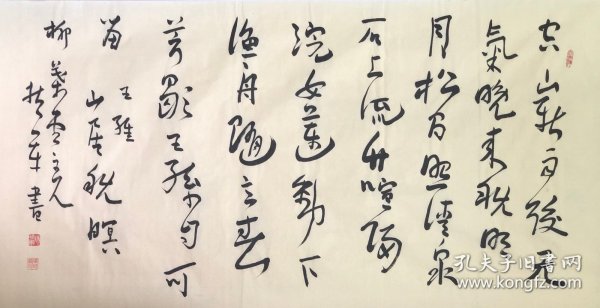 空山新雨後天
氣晚来秋明
月松间照清泉
石上流竹喧归
浣女莲動下
渔舟随意春
芳歇王孫自可
留 王維
山居秋暝
柳葉
書
孔夫子旧书网
www.kongfz.com